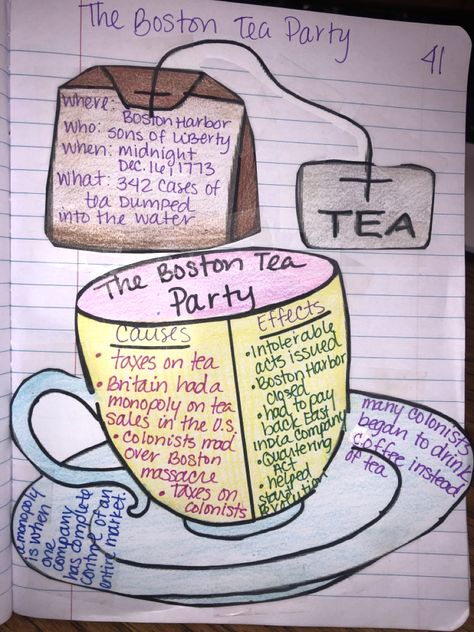 The Boston Tea Party
41
where:
Boston Harbor
who: sons of Liberty
when: midnight
Dec. 16, 1773
what: 342 cases of
tea Dumped
into the water
TEA
The Boston Tea
Party
Causes
• taxes on tea
• Britain had a
monopoly on tea
sales in the U.S.
• colonists mad
over Boston
massacre
• taxes on
colonists
Effects
• Intolerable
acts issued
• Boston Harbor
closed
• had to pay
back East
India Company
• Quartering
Act
• helped
start
Revolution
many colonists
began to drink
coffee instead
of tea
a monopoly
is when
one
company
has complete
control of an
entire market.